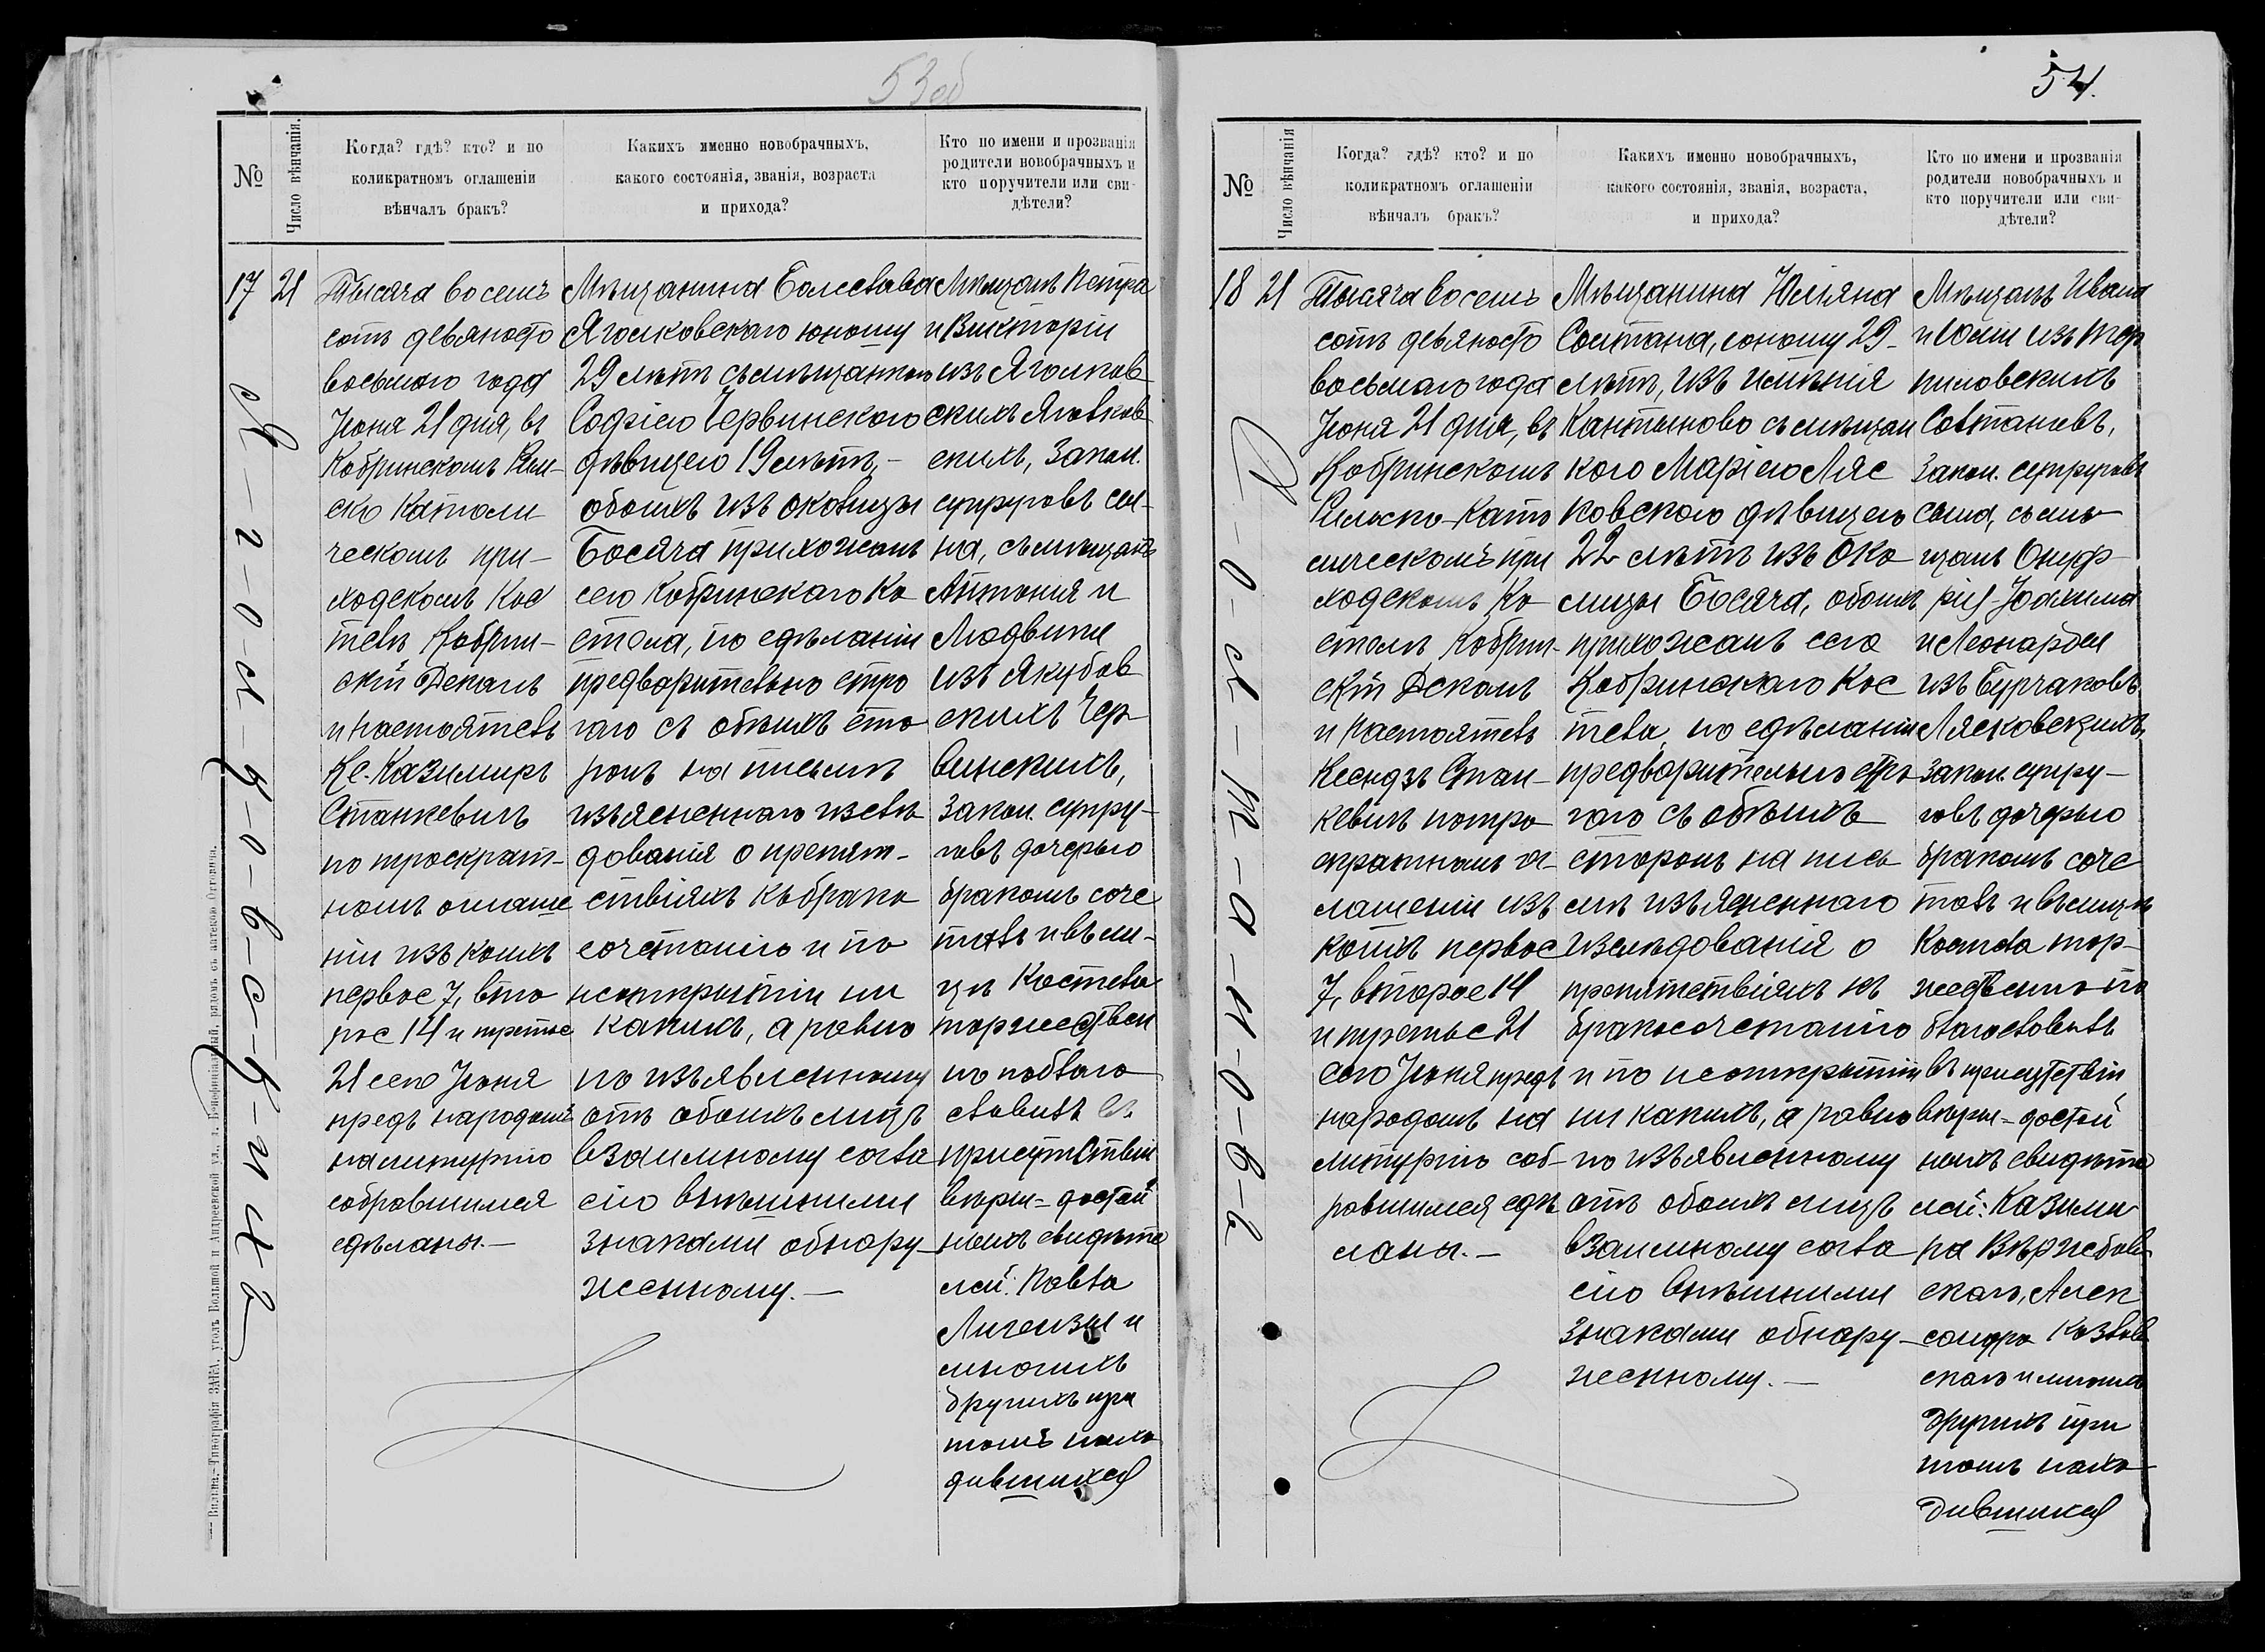 53об
№
Число вѣнчанія.
Когда? гдѣ? кто? и по
коликратномъ оглашеніи
вѣнчалъ бракъ?
Какихъ именно новобрачныхъ,
какого состоянія, званія, возраста
и прихода?
Кто по имени и прозванія
родители новобрачныхъ и
кто поручители или сви-
дѣтели?
17
21
Тысяча восемь
сотъ девяносто
восьмого года
Іюня 21 дня, въ
Кобринскомъ Рим-
ско Католи
ческомъ при-
ходскомъ Кос
телѣ Кобрин-
скій Деканъ
и настоятель
Кс. Казимиръ
Станкевичъ
по троекрат-
номъ оглаше
ніи изъ коихъ
первое 7, вто
рое 14 и третье
21 сего Іюня
предъ народомъ
на литургію
собравшимся
сдѣланы.—
Мѣщанина Болеслава
Яголковскаго юношу
29 лѣтъ съ мѣщанкою
Софіею Червинскою
дѣвицею 19 лѣтъ,—
обоихъ изъ околицы
Босяча прихожанъ
сего Кобринскаго Ко
стела, по сдѣланіи
предварительно стро
гаго съ обѣихъ сто
ронъ на письмѣ
изъясненнаго изслѣ
дованія о препят-
ствіяхъ къ брако
сочетанію и по
неоткрытіи ни
какихъ, а равно
по изъявленному
отъ обоихъ лицъ
взаимному согла
сію внѣшними
знаками обнару-
женному.—
Мѣщанъ Петра
и Викторіи
изъ Яголков
скихъ Яголков
скихъ, закон.
супруговъ сы-
на, съ мѣщанъ
Антонія и
Людвики
изъ Якубов
скихъ Чер-
винскихъ,
закон. супру-
говъ дочерью
бракомъ соче
талъ и въ ли-
цѣ Костела
торжествен
но поблаго
словилъ въ
присутствіи
вѣры-достой
ныхъ свидѣте
лей: Павла
Лигензы и
многихъ
другихъ при
томъ нахо
дившихся
Я-г-о-л-к-о-в-с-к-и-х-ъ
Вильна.–Типографія ЗАКА, уголъ Большой и Андреевской ул., д. Венеціанскій, рядомъ съ аптекою Островича.
54.
№
Число вѣнчанія
Когда? гдѣ? кто? и по
коликратномъ оглашеніи
вѣнчалъ бракъ?
Какихъ именно новобрачныхъ,
какого состоянія, званія, возраста,
и прихода?
Кто по имени и прозванія
родители новобрачныхъ и
кто поручители или сви-
дѣтели?
18
21
Тысяча восемь
сотъ девяносто
восьмого года
Іюня 21 дня, въ
Кобринскомъ
Римско-Като
лическомъ при
ходскомъ Ко
стелѣ Кобрин-
скій Деканъ
и настоятель
Ксендзъ Стан-
кевичъ потро
екратномъ ог-
лашеніи изъ
коихъ первое
7, второе 14
и третье 21
сего Іюня предъ
народомъ на
литургію соб-
равшимся сдѣ
ланы.—
Мѣщанина Юліяна
Солтана, юношу 29-
лѣтъ, изъ имѣнія
съ мѣщан
кого Маріею Ляс
ковскою дѣвицею
22 лѣтъ изъ Око
лицы Босяча, обоихъ
прихожанъ сего
Кобринскаго Кос
тела, по сдѣланіи
предварительно стро
гаго съ обѣихъ
сторонъ на пись
мѣ изъясненнаго
изслѣдованія о
препятствіяхъ къ
бракосочетанію
и по неоткрытіи
ни какихъ, а равно
по изъявленному
отъ обоихъ лицъ
взаимному согла
сію внѣшними
знаками обнару-
женному.—
Мѣщанъ Ивана
и изъ Тар
пиловскихъ
Солтановъ,
закон. супруговъ
сына, съ мѣ
щанъ Онуф-
рія-Іоахима
и Леонарды
изъ Бурчаковъ
Лясковскихъ,
закон. супру-
говъ дочерью
бракомъ соче
талъ и въ лицѣ
Костела тор-
жественно по
благословилъ
въ присутствіи
вѣры-достой
ныхъ свидѣте
лей: Казими
ра Вержбов
скаго, Алек
сандра Козлов
скаго и многихъ
другихъ при
томъ нахо
дившихся
С-о-л-т-а-н-о-в-ъ